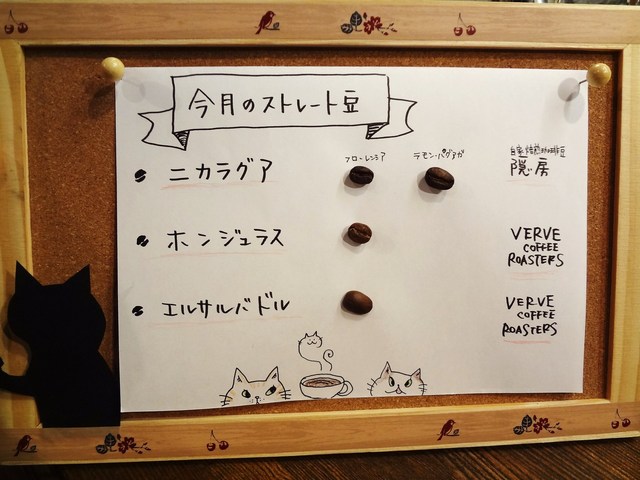 今月のストレート豆
ニカラグア
フローレンシア
ラモン・パグアガ
自家焙煎珈琲豆
隠房
ホンジュラス
VERVE
COFFEE
ROASTERS
エルサルバドル
VERVE
COFFEE
ROASTERS